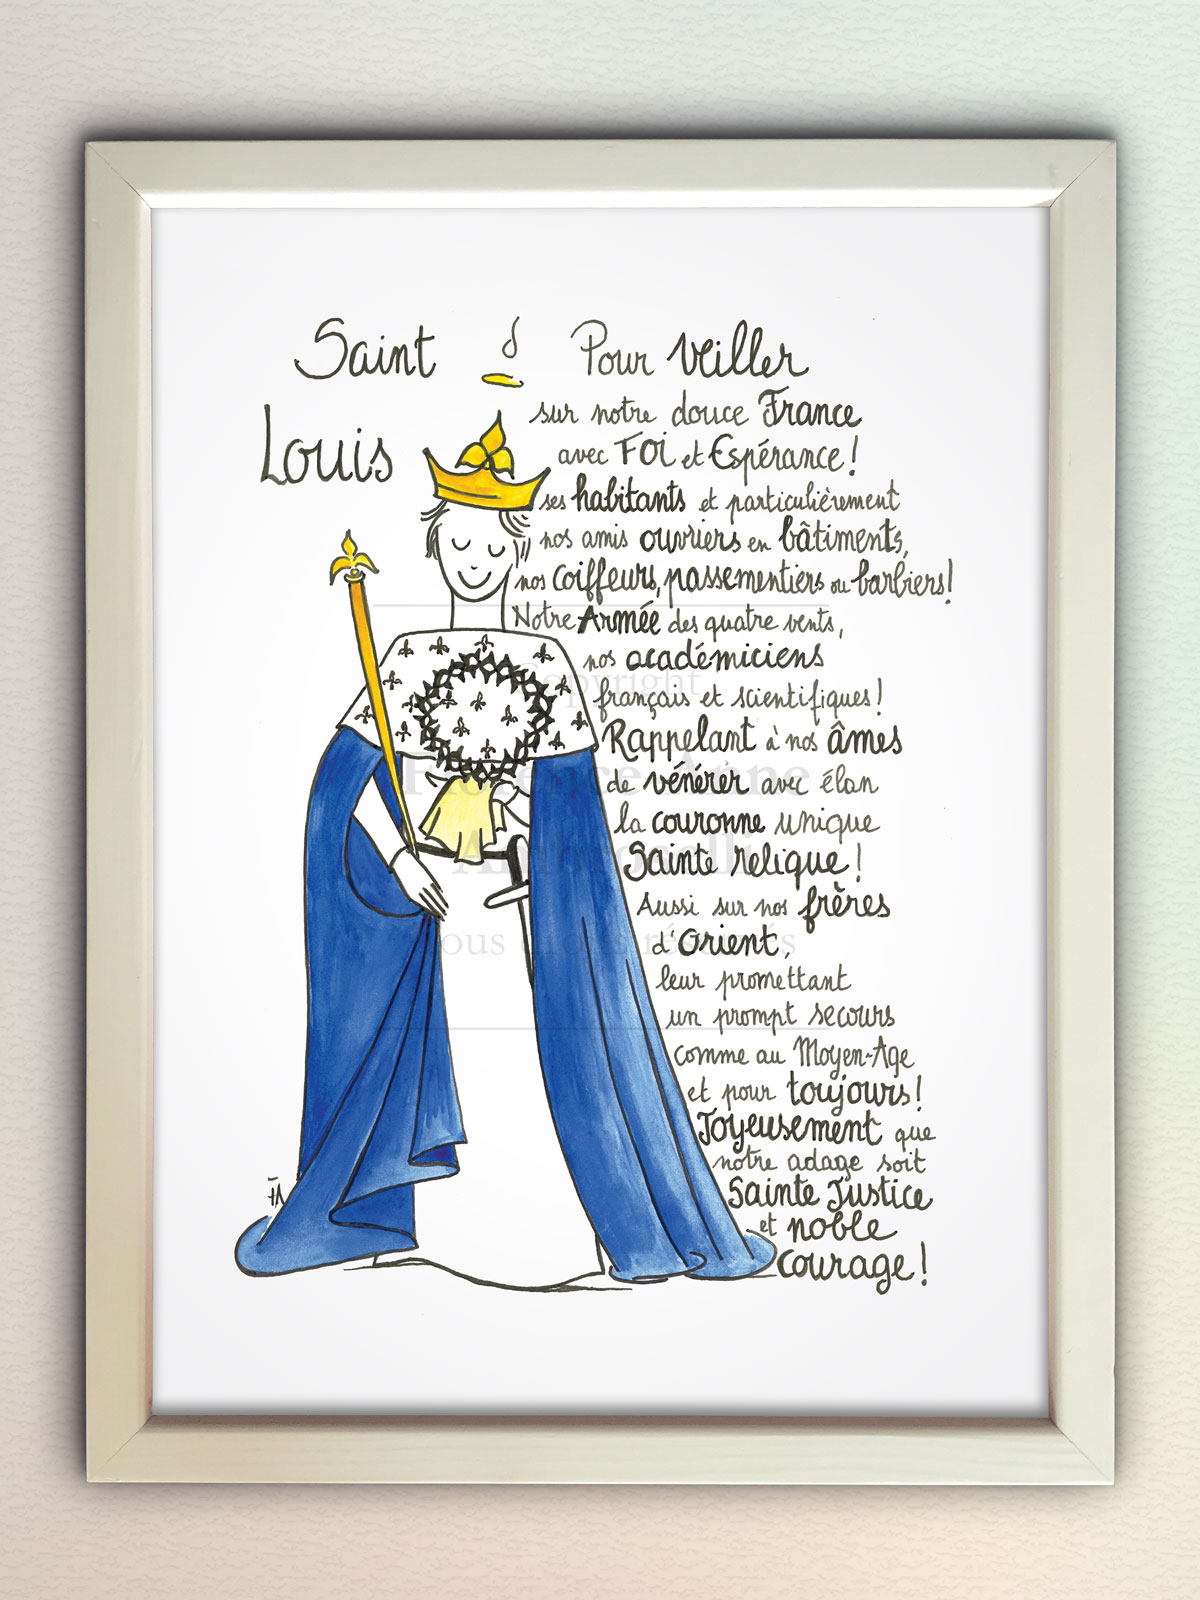 Saint
Louis
ô Pour veiller
sur notre douce France
avec Foi et Espérance !
ses habitants et particulièrement
nos amis ouvriers en bâtiments,
nos coiffeurs, passementiers ou barbiers !
Notre Armée des quatre vents,
nos académiciens
français et scientifiques !
Rappelant à nos âmes
de vénérer avec élan
la couronne unique
Sainte relique !
Aussi sur nos frères
d'Orient,
leur promettant
un prompt secours
comme au Moyen-Age
et pour toujours !
Joyeusement que
notre adage soit
Sainte Justice
et noble
courage !
FA
Copyright
Florence-Anne
Ambroselli
Tous droits réservés